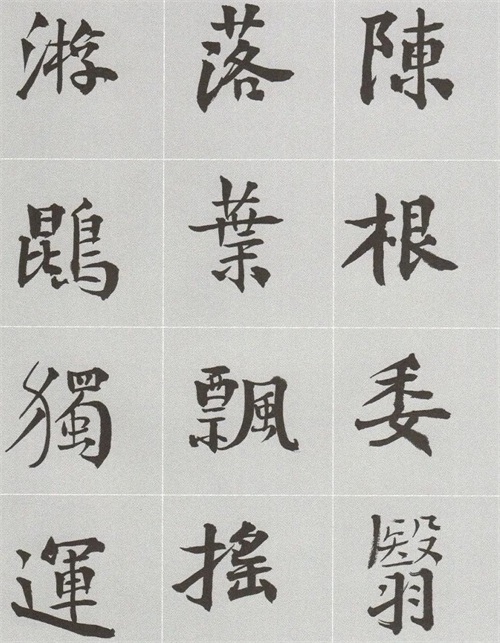 陳根委翳
落葉飄搖
游鵾獨運